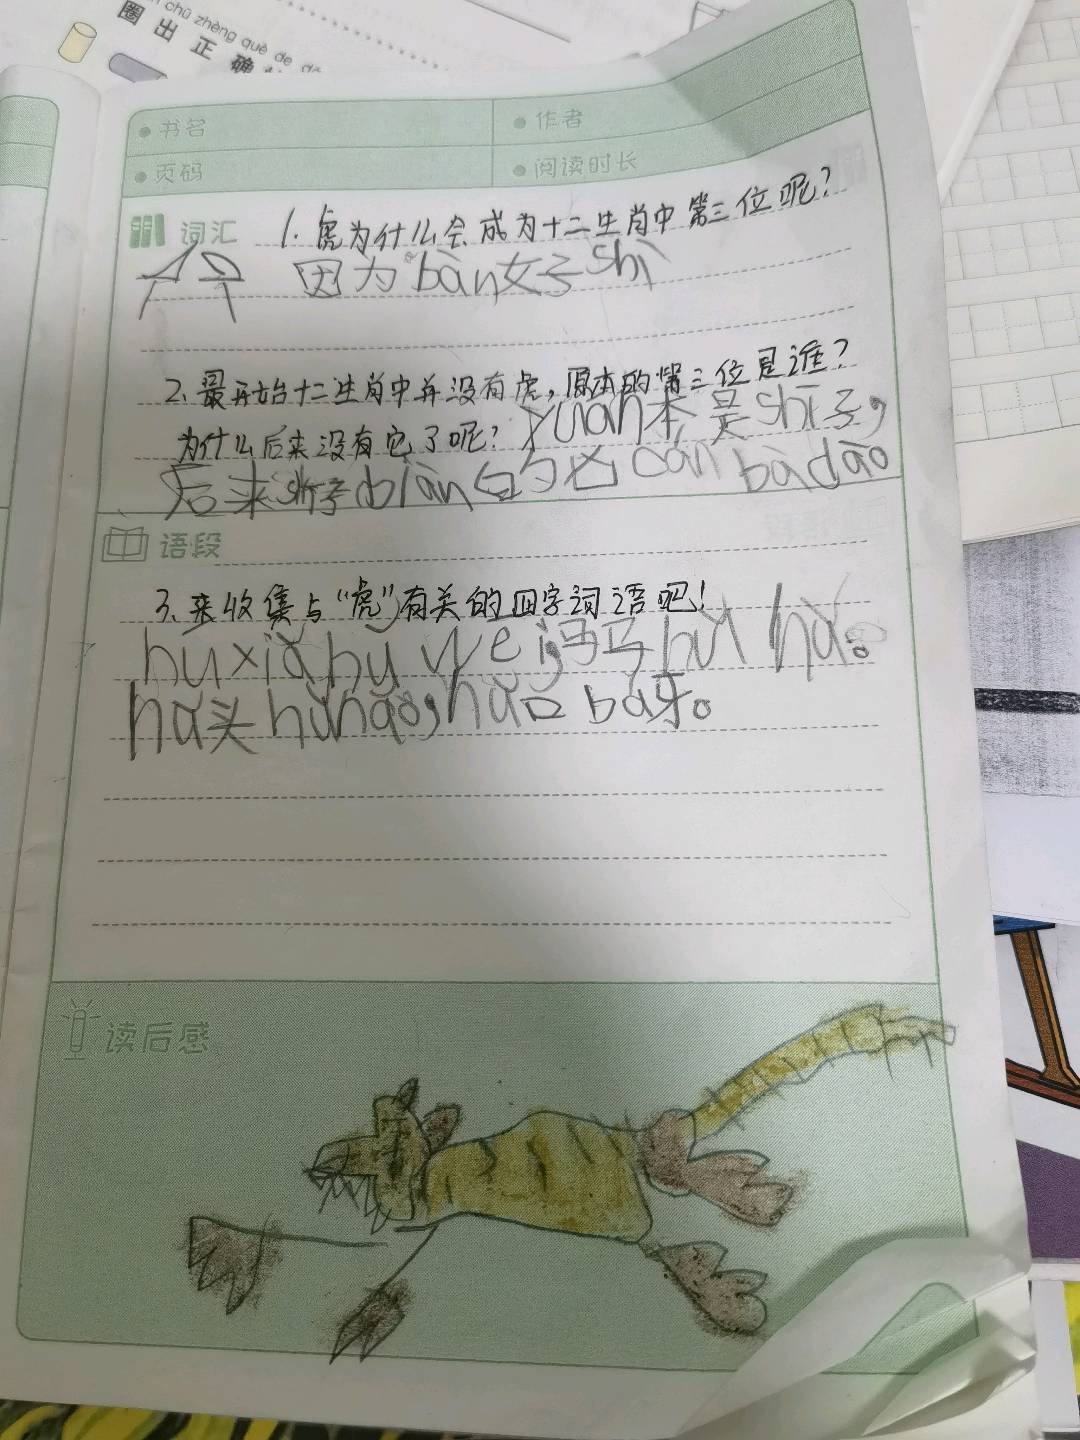 chū zhèng què de
圈出正确
书名
作者
页码
阅读时长
词汇
1. 虎为什么会成为十二生肖中第三位呢?
因为bàn女子shì
2. 最开始十二生肖中并没有虎,原本的第三位是谁?
为什么后来没有它了呢?
yuan本是shī子,
后来狮子biàn白勺凶cán bà dào
语段
3. 来收集与“虎”有关的四字词语吧!
hu xià hǔ wēi,马马hǔ hǔ。
hǔ头hǔ nǎo,hǔ口bá牙。
读后感